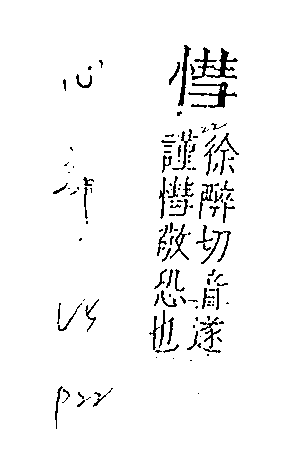 徐醉切音遂
謹敬恐也
心部
P22